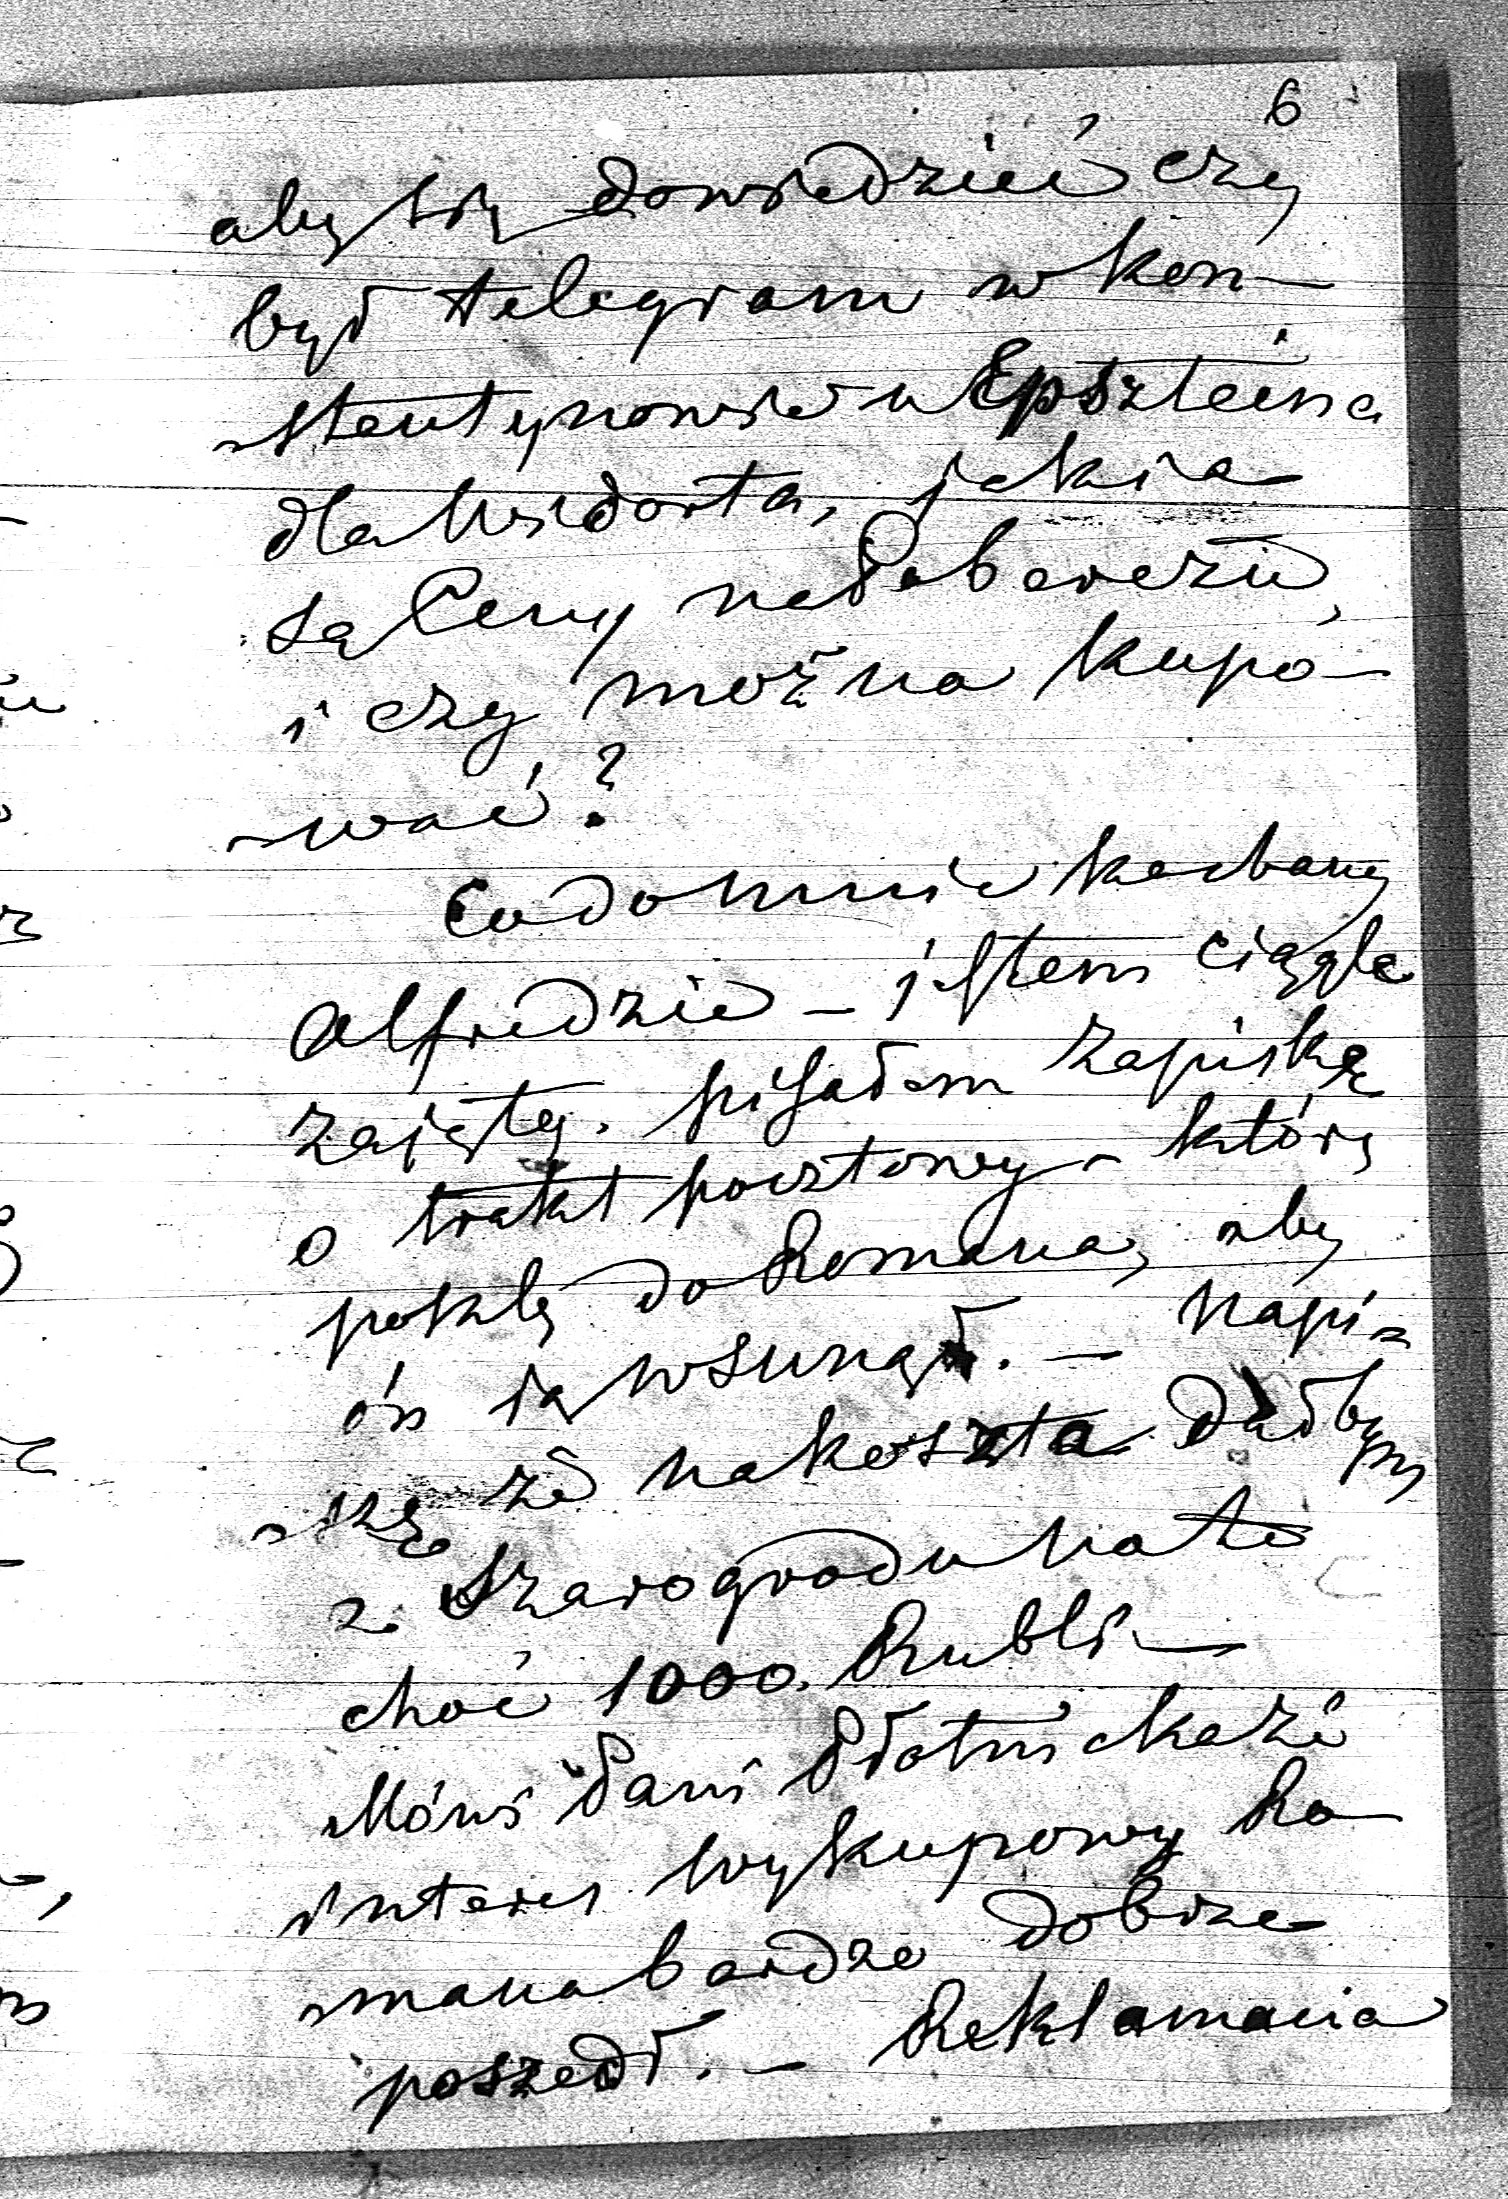 6
aby się dowiedzieć czy
był telegram w kon-
-stantynowie u Epszteina
dla Widorta, jakie
są Ceny na Pobereżu,
i czy można kupo-
-wać?
Co do mnie kochany
Alfredzie - jestem ciągle
zajęty. pisałem zapiskę
o trakt pocztowy - którą
poszlę do Romana, aby
ón ją wsunął. - Napi-
-szę że na koszta dałbym
z Szarogrodu na to
choć 1000. Rubli -
Mówi Pani Płotnicka że
interes wykupowy Ro-
-mana bardzo dobrze
poszedł. - Reklamacia